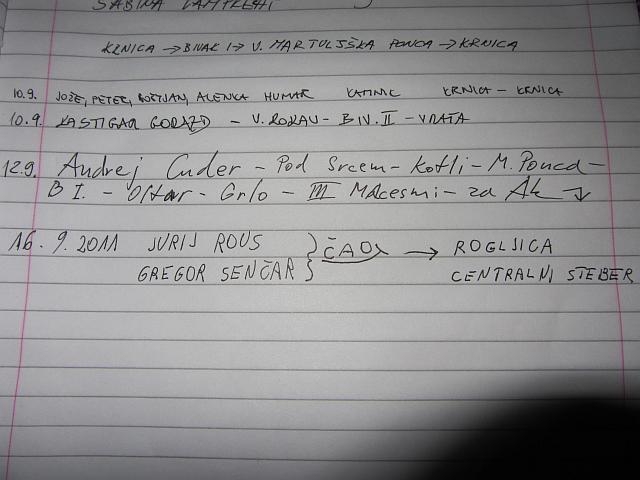 SABINA
KRNICA → BIVAK I → V. MARTULJŠKA PONCA → KRNICA
10.9. JOŽE, PETER, BOŠTJAN, ALENKA HUMAR KAMNIK KRNICA - KRNICA
10.9. KASTIGAR GORAZD - V. - BIV. II - VRATA
12.9. Andrej Cuder - Pod Srcem - Kotli - M. Ponca -
B I. - Oltar - Grlo - III Macesni - za Ak ↓
16. 9. 2011 JURIJ ROUS } ČAO → ROGLJICA
GREGOR SENČAR } CENTRALNI STEBER